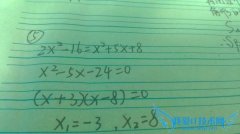 (5)
2x²-16=x²+5x+8
x²-5x-24=0
(x+3)(x-8)=0
x₁=-3, x₂=8